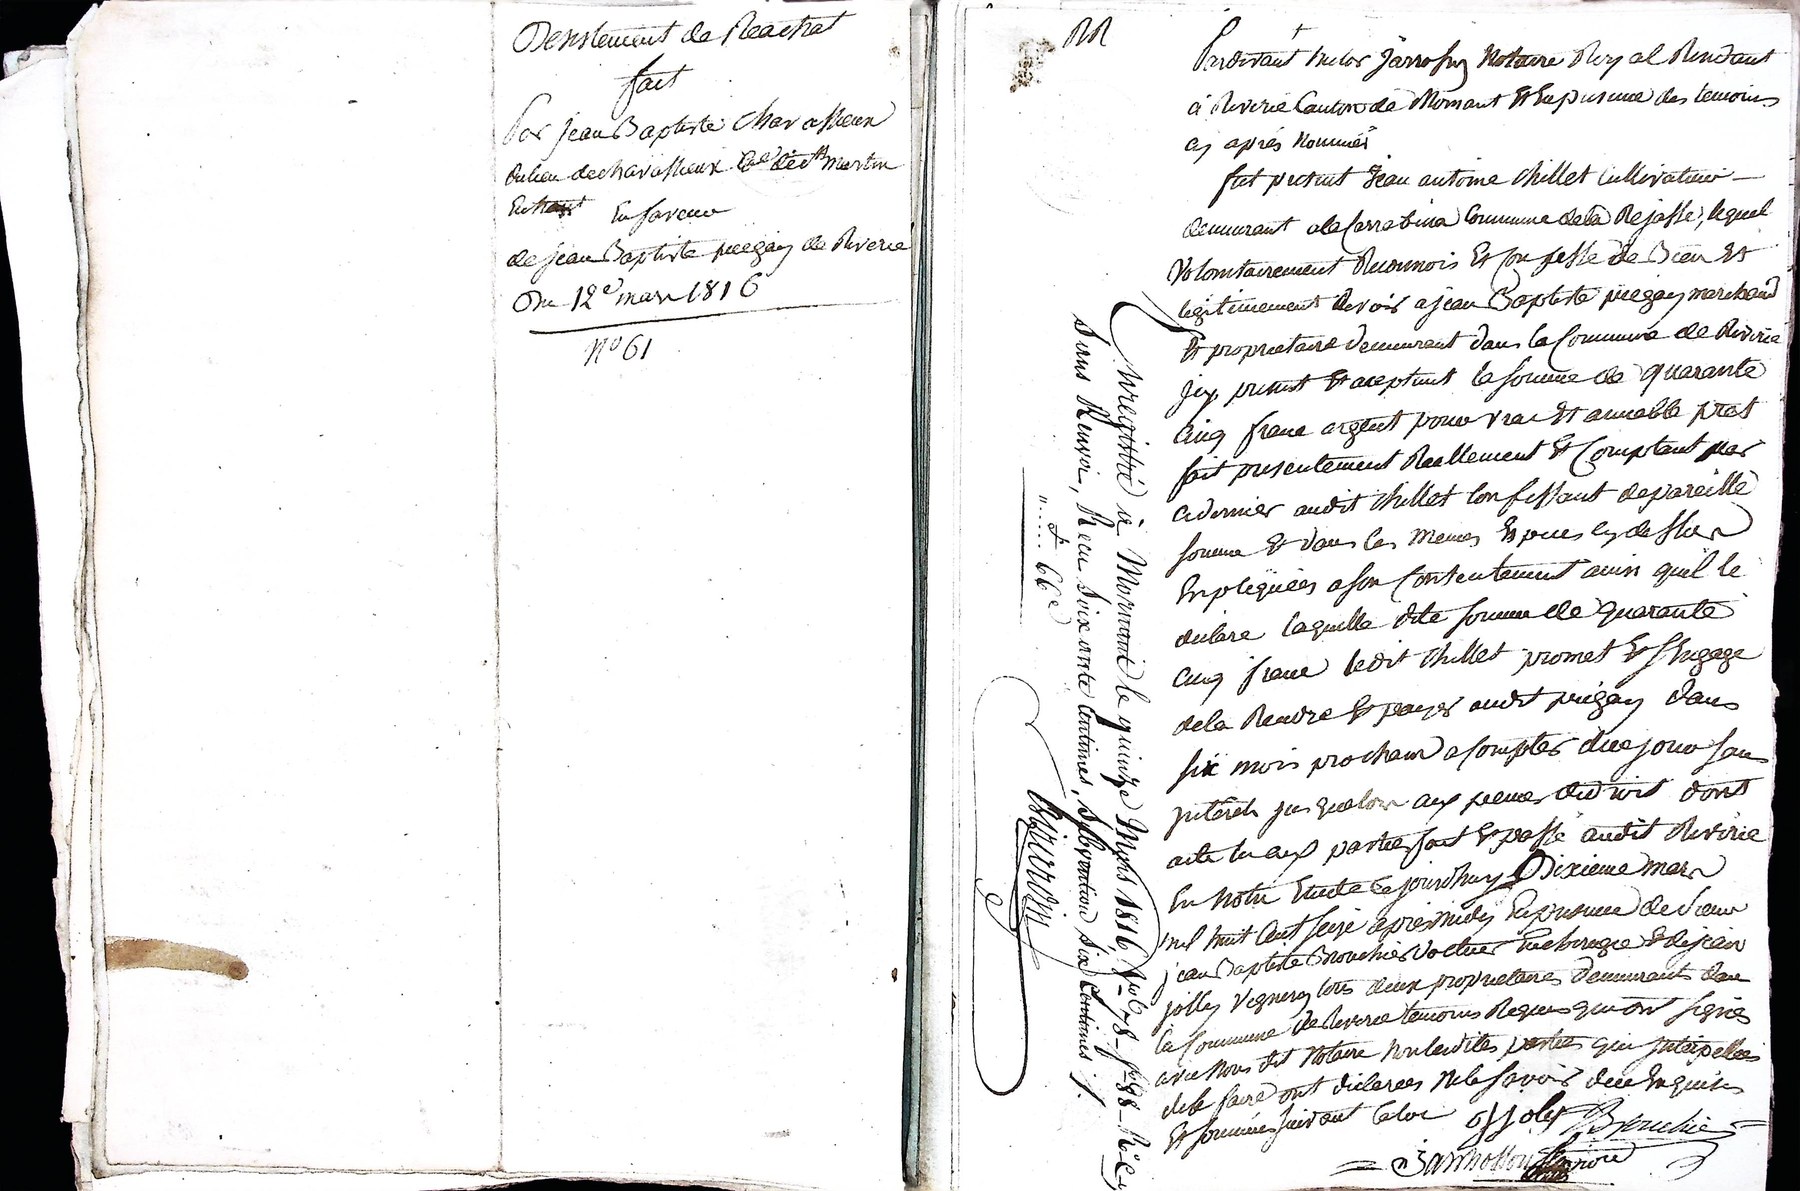 Desistement de Reachat
fait
Par jean Baptiste Charassieux
du lieu de charassieux Cne de st martin
En haut En faveur
de jean Baptiste piegay de Riverie
Du 12e mars 1816
No 61
RR
Pardevant Jarrosson Notaire Royal Residant
à Riverie Canton de Mornant Et En presence des temoins
cy après Nommés
fut present Jean antoine Chillet Cullivateur
demeurant a la Carrabina Commune de la Rejasse, lequel
Volontairement Reconnois Et Confesse de Bien Et
legitimement devoir a jean Baptiste piegay marchand
Et proprietaire demeurant dans la Commune de Riverie
jcy present Et aceptant la somme de quarante
cinq franc argent pour vrai Et amiable prêt
fait presentement Reellement Et Comptant par
ce dernier audit Chillet Confessant de pareille
somme Et dans les memes Especes cy dessus
Expliquées a son Contentement ainsi quil le
declare laquelle dite somme de quarante
cinq franc ledit Chillet promet Et s'Engage
de la Rendre Et payer audit piegay dans
six mois prochain a Compter de ce jour sans
jnterets jusquelors aux peines de droit dont
acte lu aux parties fait Et passé audit Riverie
En notre Etude Ce jourdhuy Dixieme mars
mil huit Cent seize après midy En presence de sieur
jean Baptiste Brouchier docteur En chirurgie Et de jean
jolly Vigneron tous deux proprietaires demeurants dans
la Commune de Riverie temoins Requis qui ont signés
avec Nous dit Notaire Non lesdites parties qui jnterpellées
de le faire ont déclarées Ne le savoir de ce Enquises
Et sommées suivant la loi jjoly Brouchier
Enregistré à Mornant le quinze Mars 1816, fo 78
Sans Renvoi, Recu Soixante Centimes, Subvention six Centimes ./.
"....f 66c